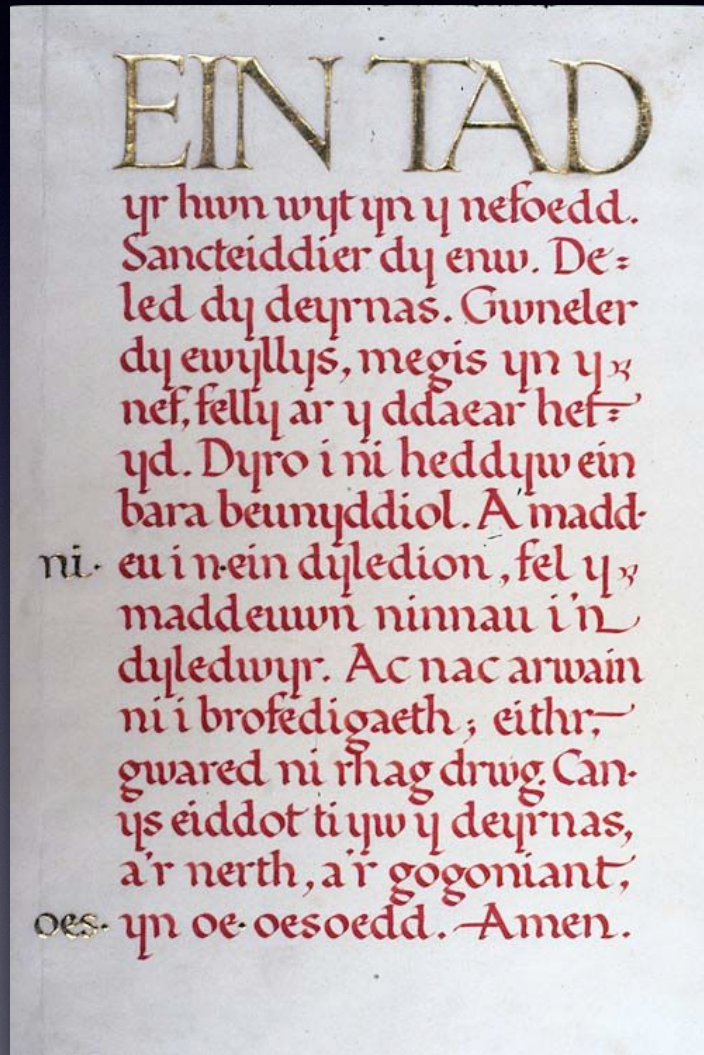 EIN TAD
yr hwn wyt yn y nefoedd.
Sancteiddier dy enw. De=
led dy deyrnas. Gwneler
dy ewyllys, megis yn y
nef, felly ar y ddaear hef=
yd. Dyro i ni heddyw ein
bara beunyddiol. A madd-
ni· eu i n·ein dyledion, fel y
maddeuwn ninnau i'n
dyledwyr. Ac nac arwain
ni i brofedigaeth; eithr,
gwared ni rhag drwg. Can-
ys eiddot ti yw y deyrnas,
a'r nerth, a'r gogoniant,
oes· yn oe· oesoedd. Amen.